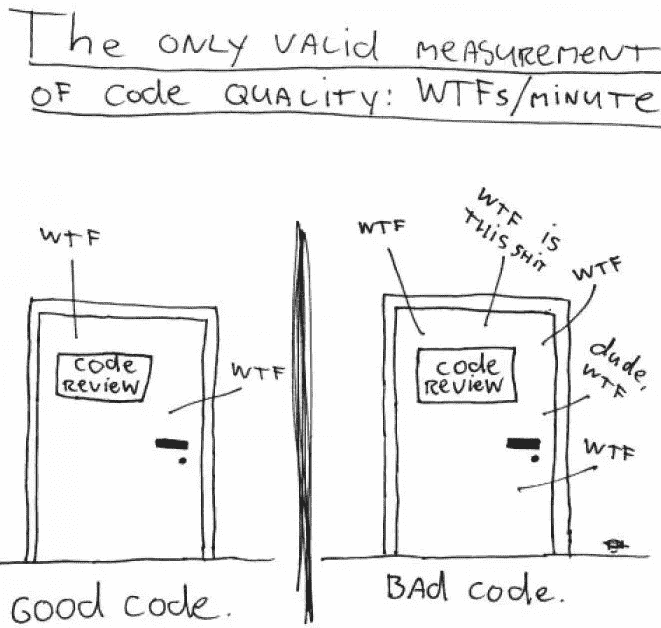 The ONLY VALid MEASUREMENT
OF Code QUALITY: WTFs/MINUTE
WTF
Code
REVIEW
WTF
GOOD CODE.
WTF
WTF iS
THIS SHIT
WTF
Code
REVIEW
dude,
WTF
WTF
BAd Code.